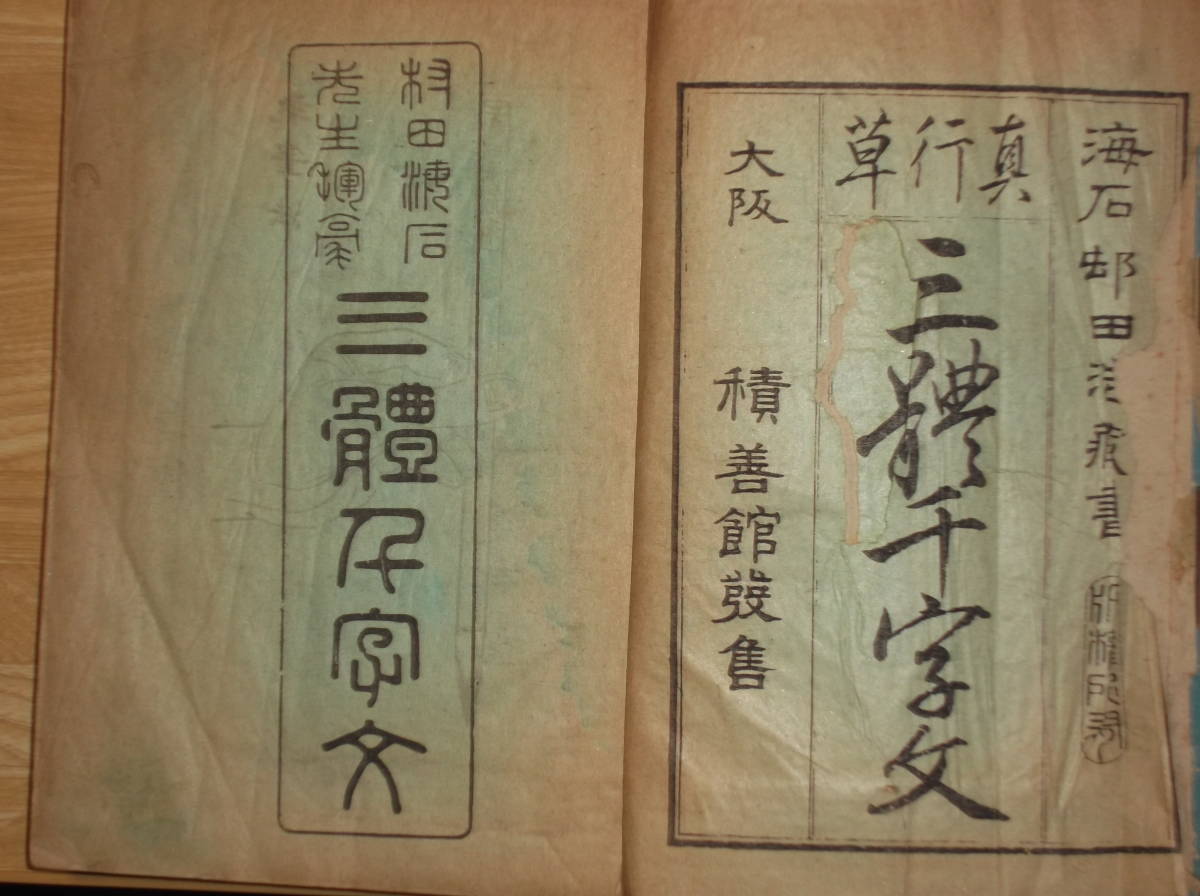 海石邨田浩藏書
版權所有
真行草
三體千字文
大阪 積善館發售
村田海石
先生揮毫
三體千字文